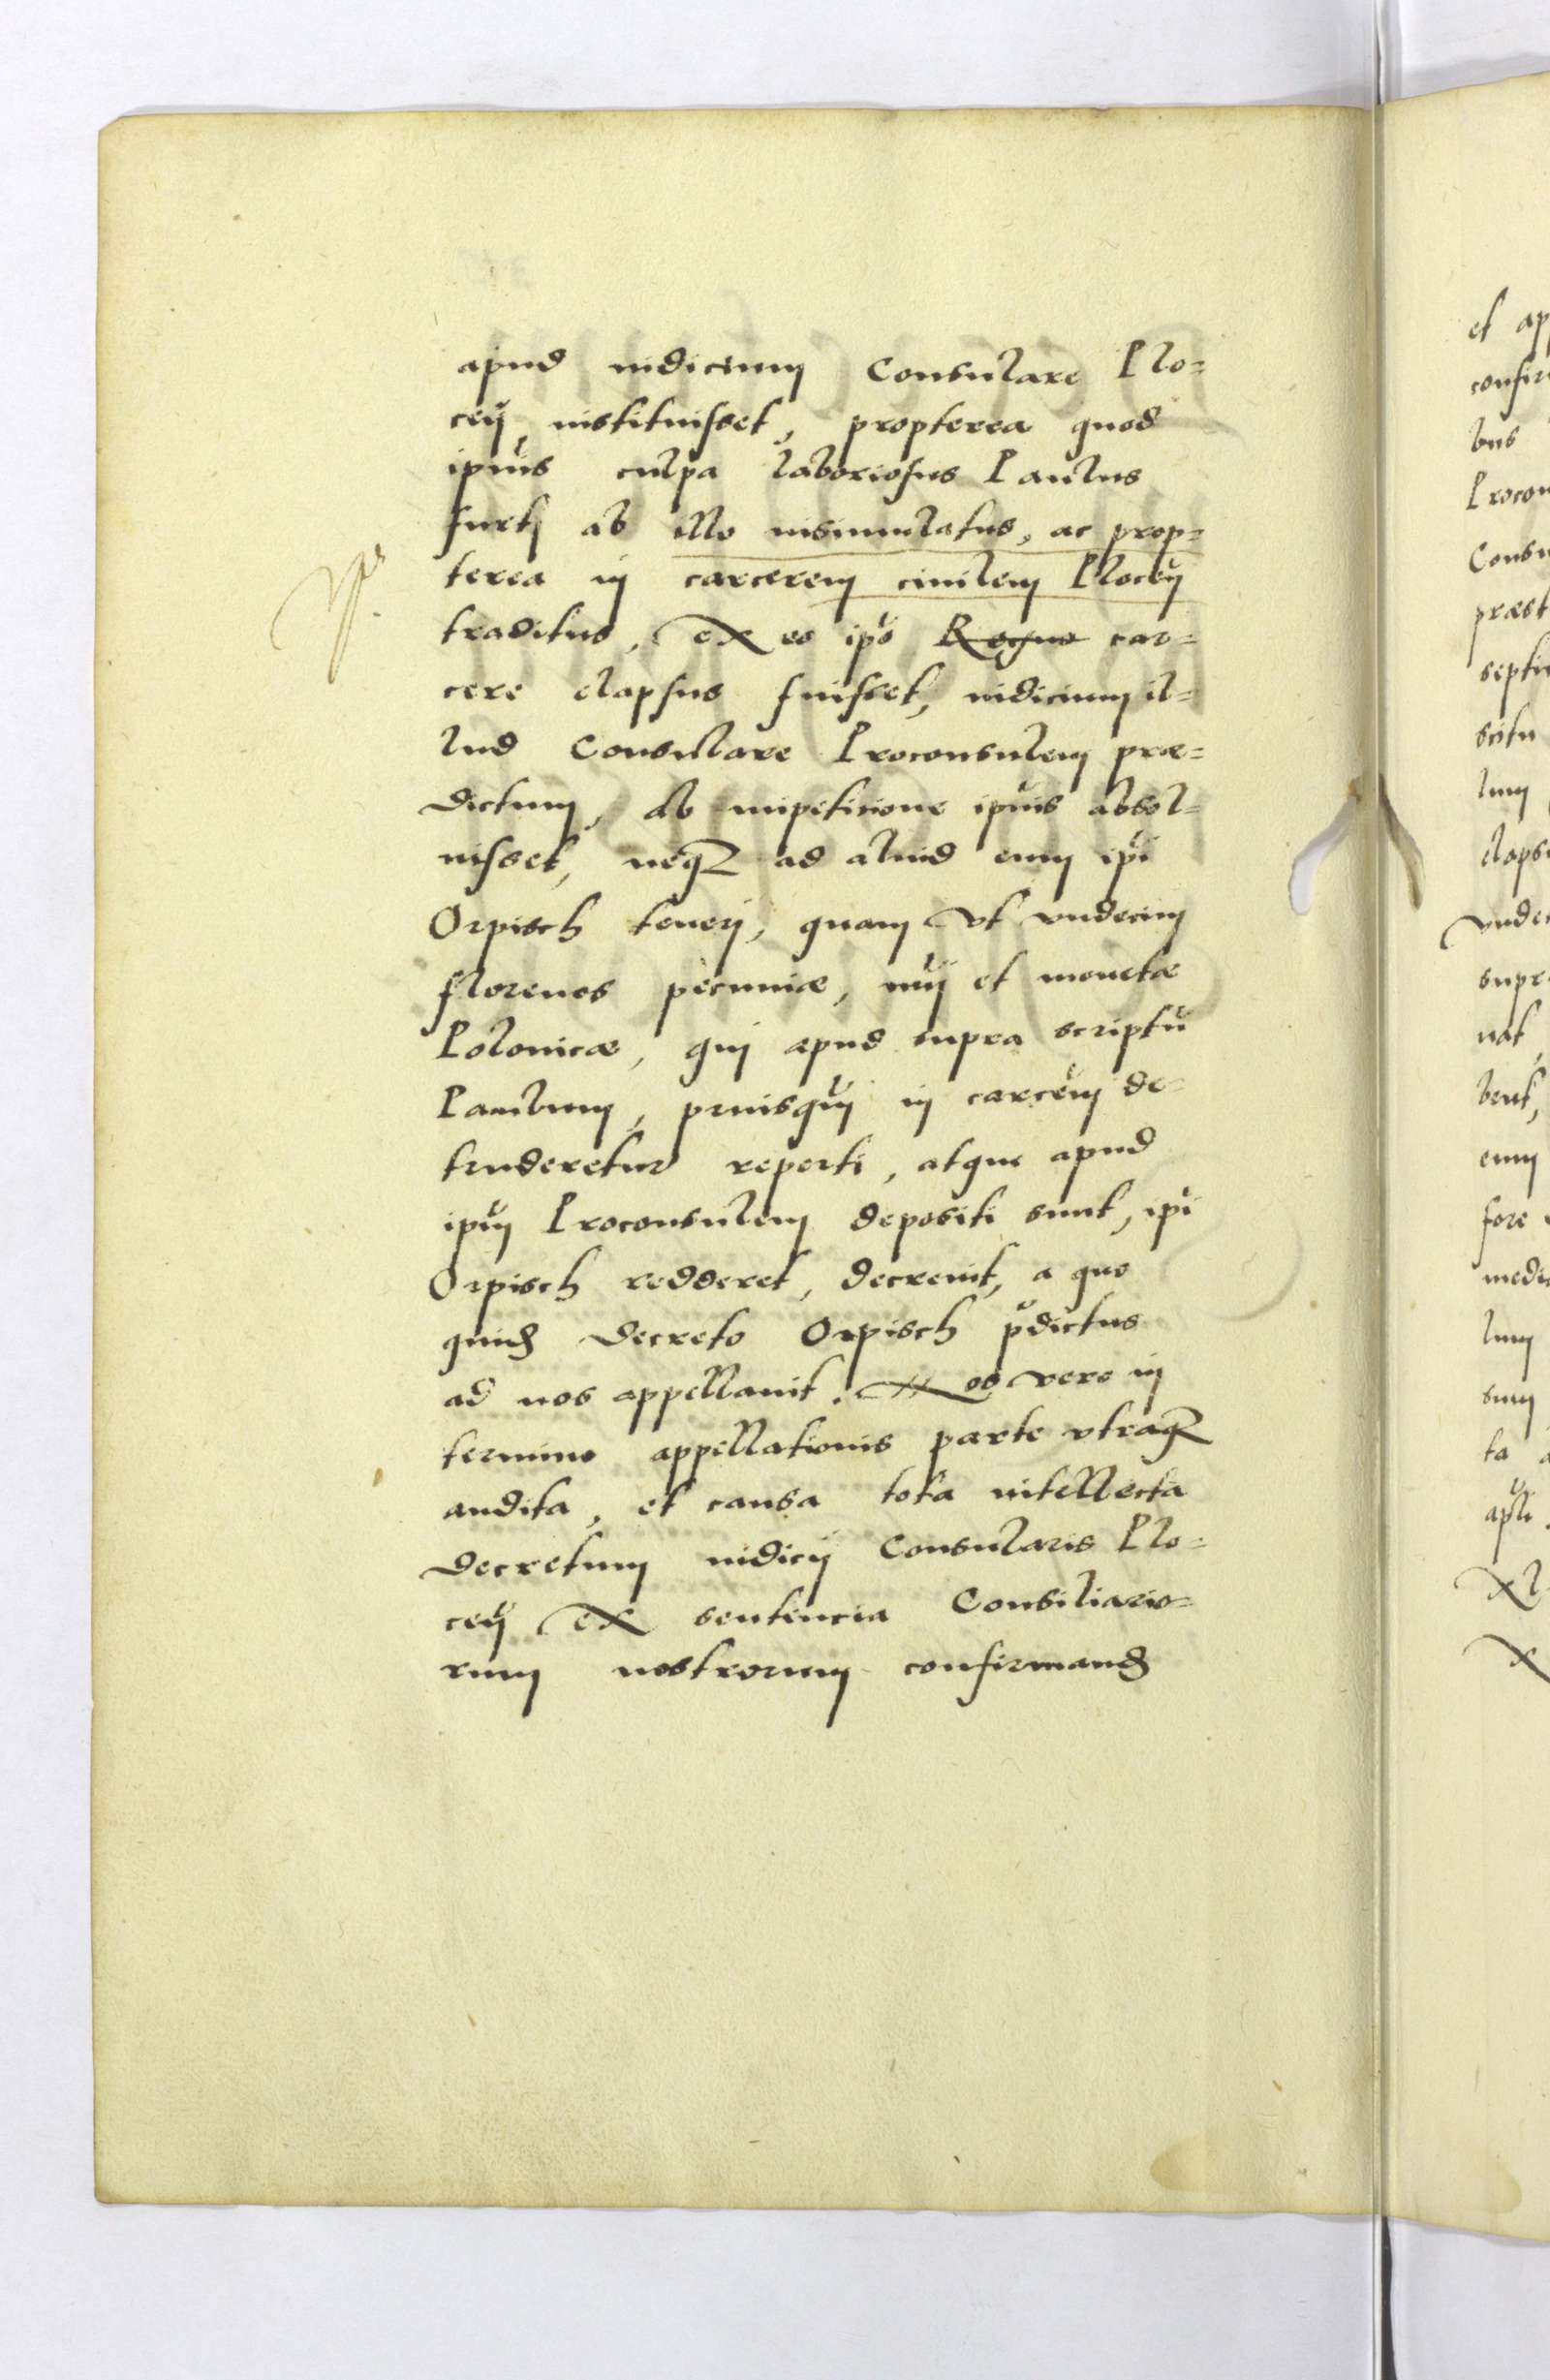 apud iudicium Consulare Plo=
ceñ, instituisset, propterea quod
ipiũs culpa laboriosus Paulus
furti ab illo insimulatus, ac prop=
terea in carcerem ciuilem Ploceñ
traditus, ex eo ipõ Regno car=
cere elapsus fuisset, iudicium il=
lud Consulare Proconsulem præ=
dictum, ab impeticione ipiũs absol=
uisset, neq₃ ad aliud eum ipĩ
Orpisch teneri, quam vt vndecim
florenos pecuniæ, nũi et monetæ
Polonicæ, qui apud supra scriptũ
Paulum, priusqũ in carcẽm de=
truderetur reperti, atque apud
ipũm Proconsulem depositi sunt, ipĩ
Orpisch redderet, decreuit, a quo
quid̃ decreto Orpisch p̃dictus
ad nos appellauit. Nos vero in
termino appellationis parte vtraq₃
audita, et causa tota intellecta
decretum iudicij Consularis Plo=
ceñ ex sentencia Consiliario=
rum nostrorum confirmand̃
et ap
confir
bus
Procon
Consu
præst
septi
scitu
lum
elaps
vnde
supr
nat
bent,
eum
fore
medi
lum
sum
ta a
apĩ